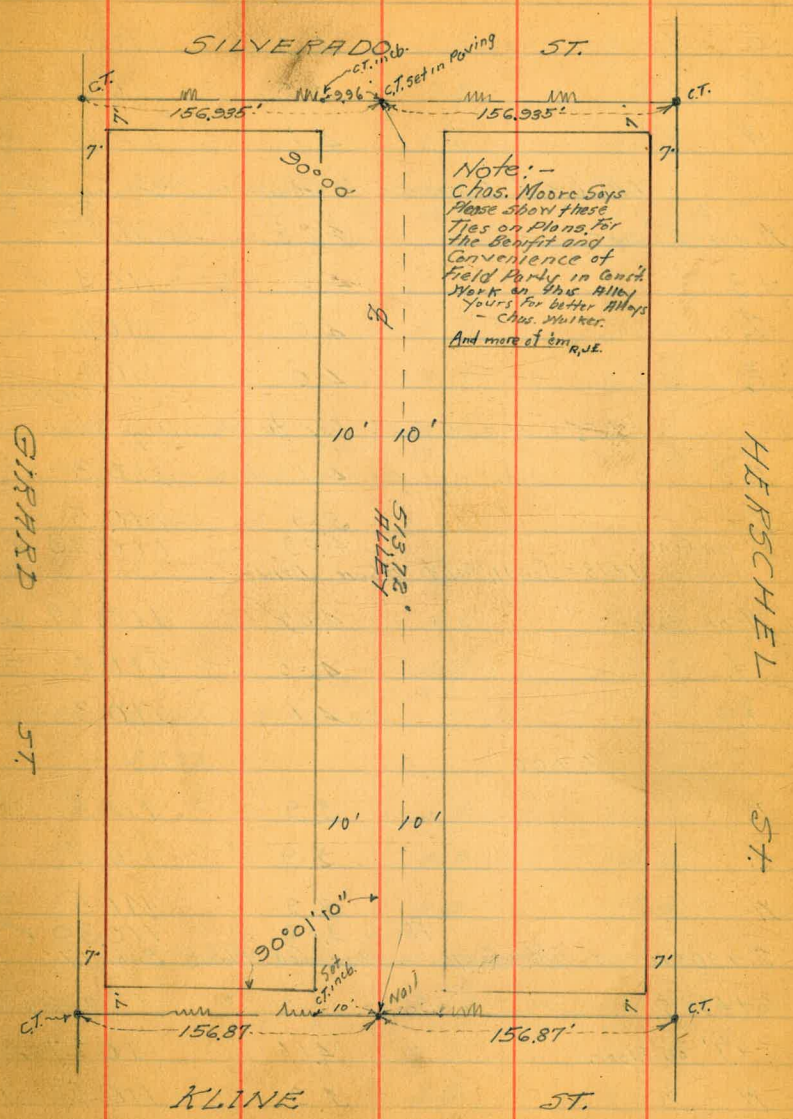 SILVERADO ST.
C.T.
C.T. in cb.
9.96
C.T. set in paving
C.T.
156.935'
156.935'
7'
7'
7'
7'
90°00'
Note:-
Chas. Moore Says
Please show these
Ties on Plans. For
the Benifit and
Convenience of
Field Party in Const.
Work on this Alley
Yours For better Alleys
- Chas. Walker.
And more of 'em R,J.E.
℄
10' 10'
GIRARD ST.
513.72'
ALLEY
HERSCHEL St.
10' 10'
90°01'10"
7'
7'
7'
7'
Set
C.T. in cb.
10'
Nail
C.T.
C.T.
156.87
156.87'
KLINE ST.